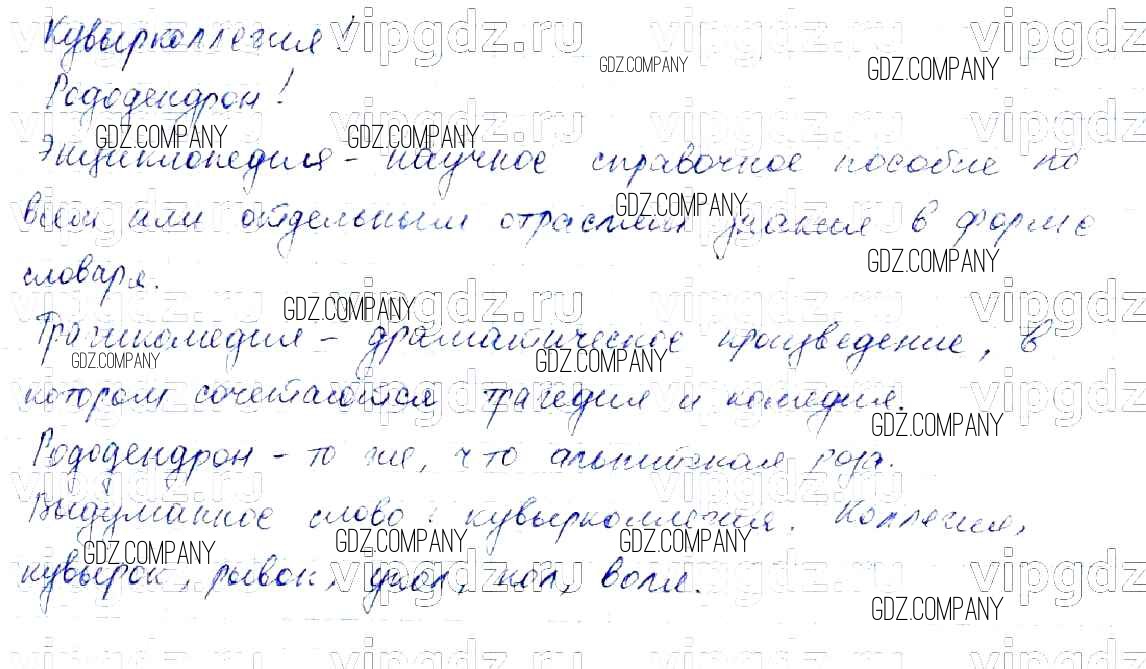 Кувырколлегия!
Рододендрон!
Энциклопедия - научное справочное пособие по
всем или отдельным отраслям знания в форме
словаря.
Трагикомедия - драматическое произведение, в
котором сочетаются трагедия и комедия.
Рододендрон - то же, что альпийская роза.
Выдуманное слово: кувырколлегия. Коллегия,
кувырок, рывок, укол, кол, воля.
vipgdz.ru
GDZ.COMPANY